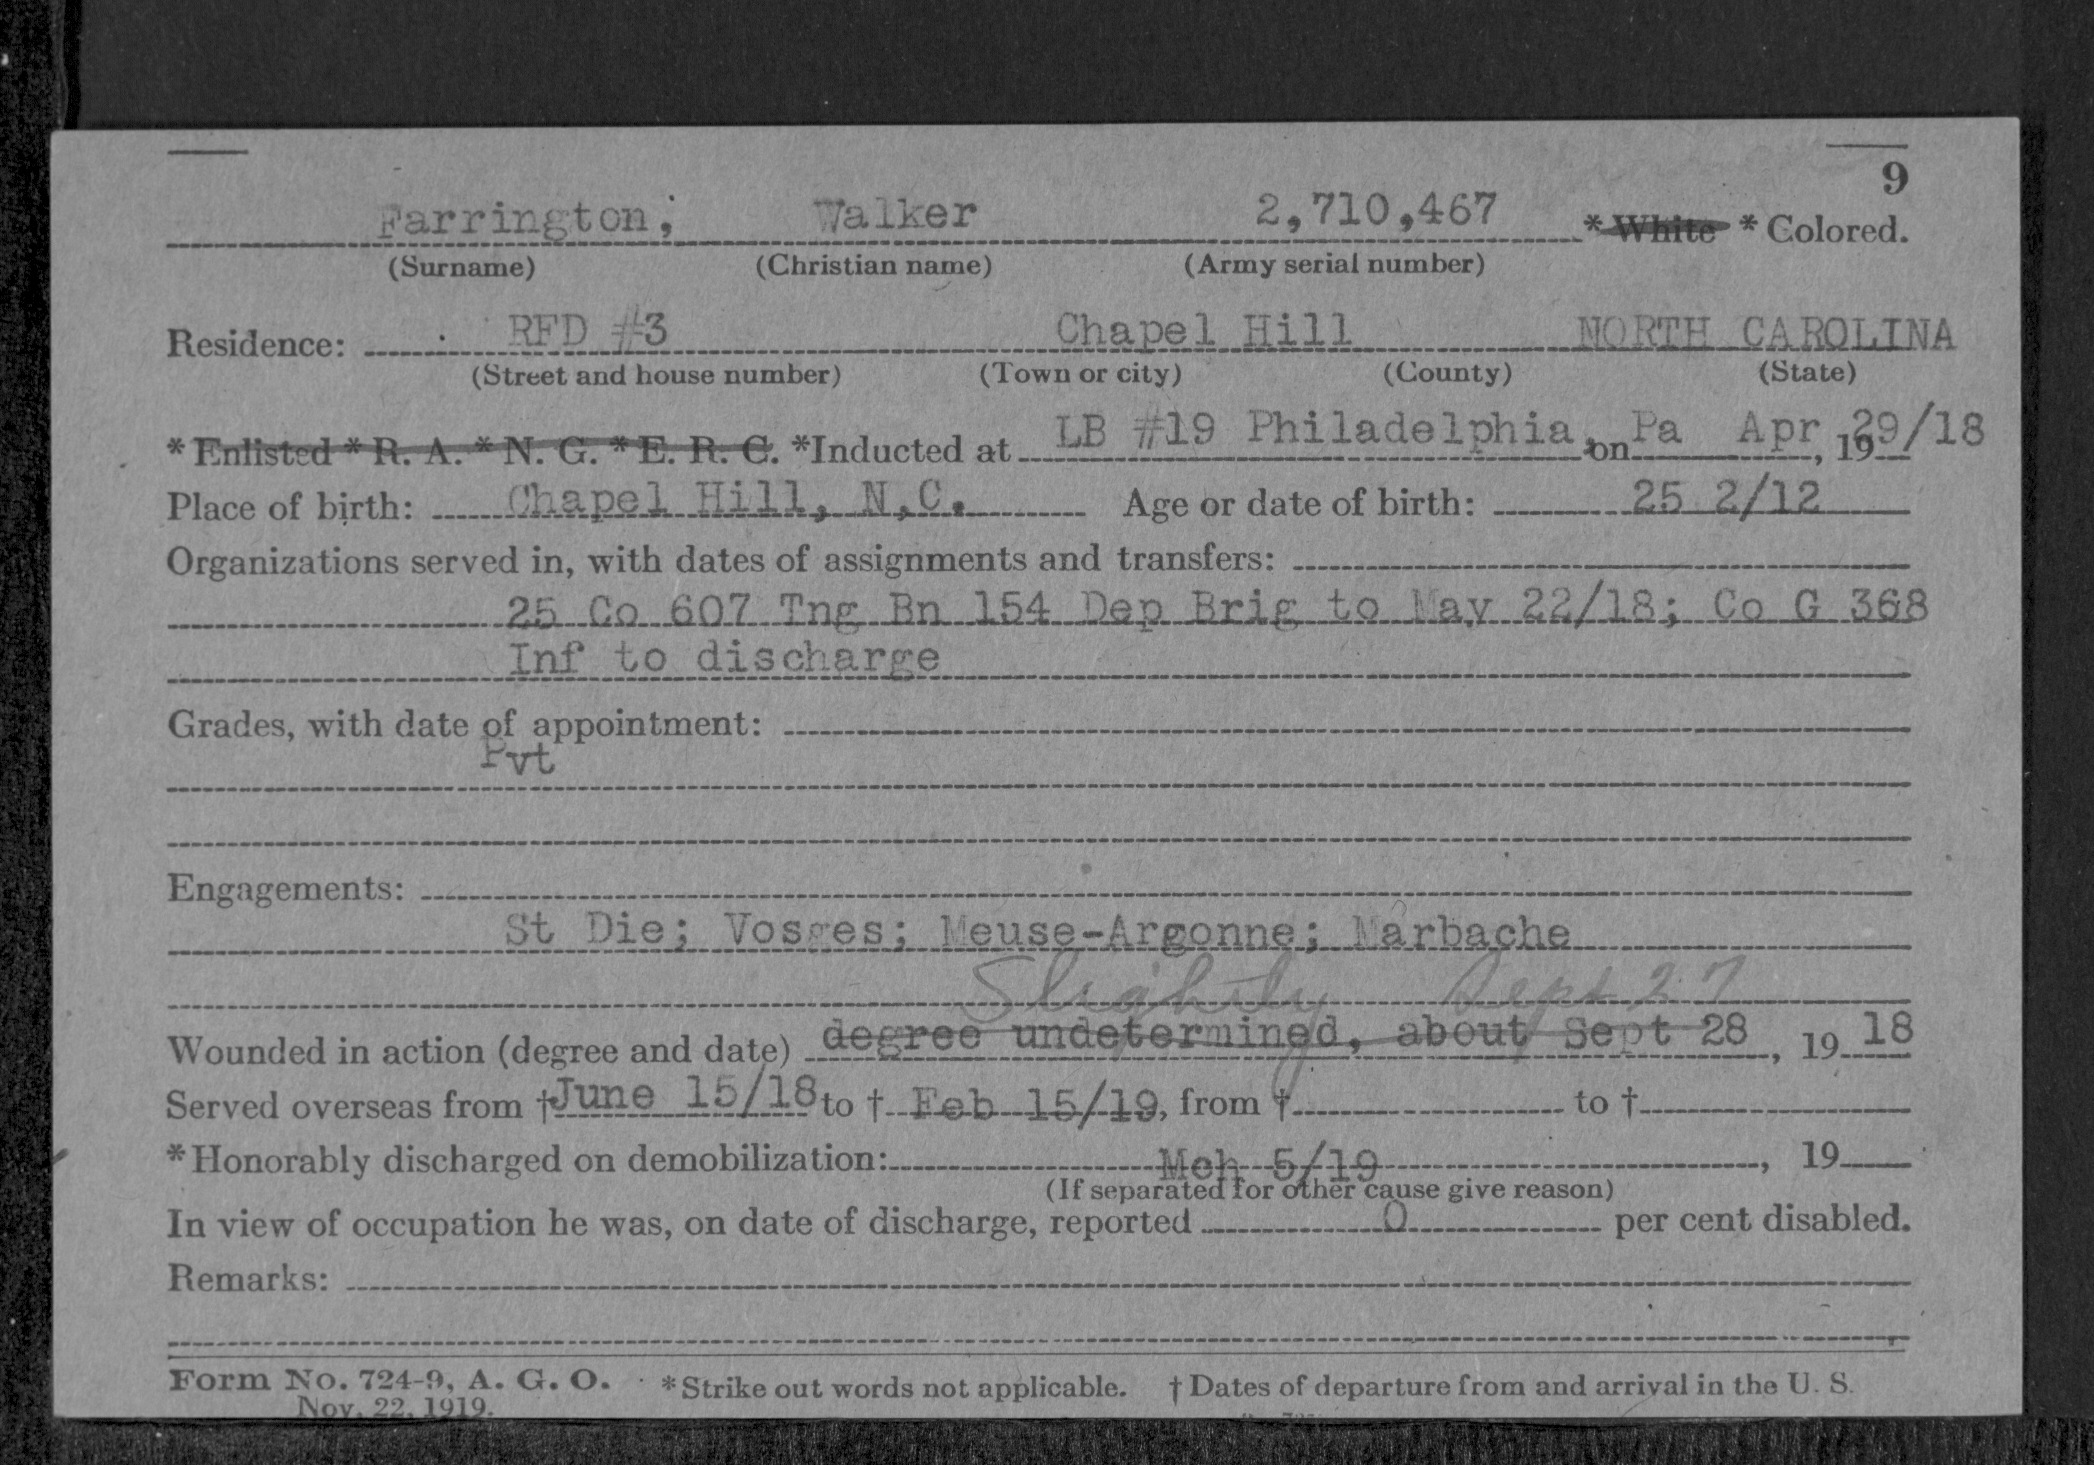 9
Farrington, Walker 2,710,467 * White * Colored.
(Surname) (Christian name) (Army serial number)
Residence: RFD #3 Chapel Hill NORTH CAROLINA
(Street and house number) (Town or city) (County) (State)
* Enlisted * R. A. * N. G. * E. R. C. *Inducted at LB #19 Philadelphia, on Pa Apr 29/18, 19
Place of birth: Chapel Hill, N.C. Age or date of birth: 25 2/12
Organizations served in, with dates of assignments and transfers:
25 Co 607 Tng Bn 154 Dep Brig to May 22/18; Co G 368
Inf to discharge
Grades, with date of appointment:
Pvt
Engagements:
St Die; Vosges; Meuse-Argonne; Marbache
Slightly Sept 27
Wounded in action (degree and date) degree undetermined, about Sept 28, 19 18
Served overseas from † June 15/18 to † Feb 15/19, from † to †
* Honorably discharged on demobilization: Mch 5/19, 19
(If separated for other cause give reason)
In view of occupation he was, on date of discharge, reported 0 per cent disabled.
Remarks:
Form No. 724-9, A. G. O. * Strike out words not applicable. † Dates of departure from and arrival in the U. S.
Nov. 22, 1919.